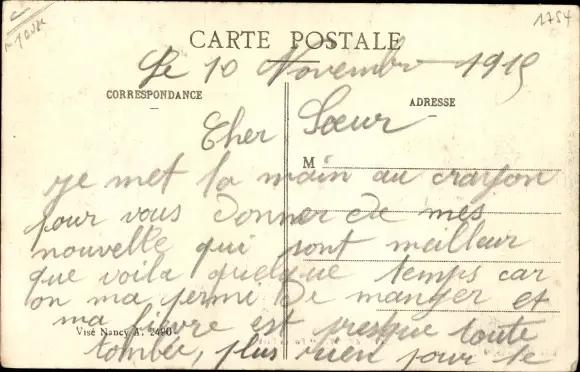 1754
CARTE POSTALE
Le 10 Novembre 1915
CORRESPONDANCE
ADRESSE
Cher Sœur
M
Je met la main au crayon
pour vous donner de mes
nouvelle qui sont meilleur
que voila quelque temps car
on ma permi de manger et
ma fievre est presque toute
Visé Nancy A. 2490
tombée, plus rien pour le